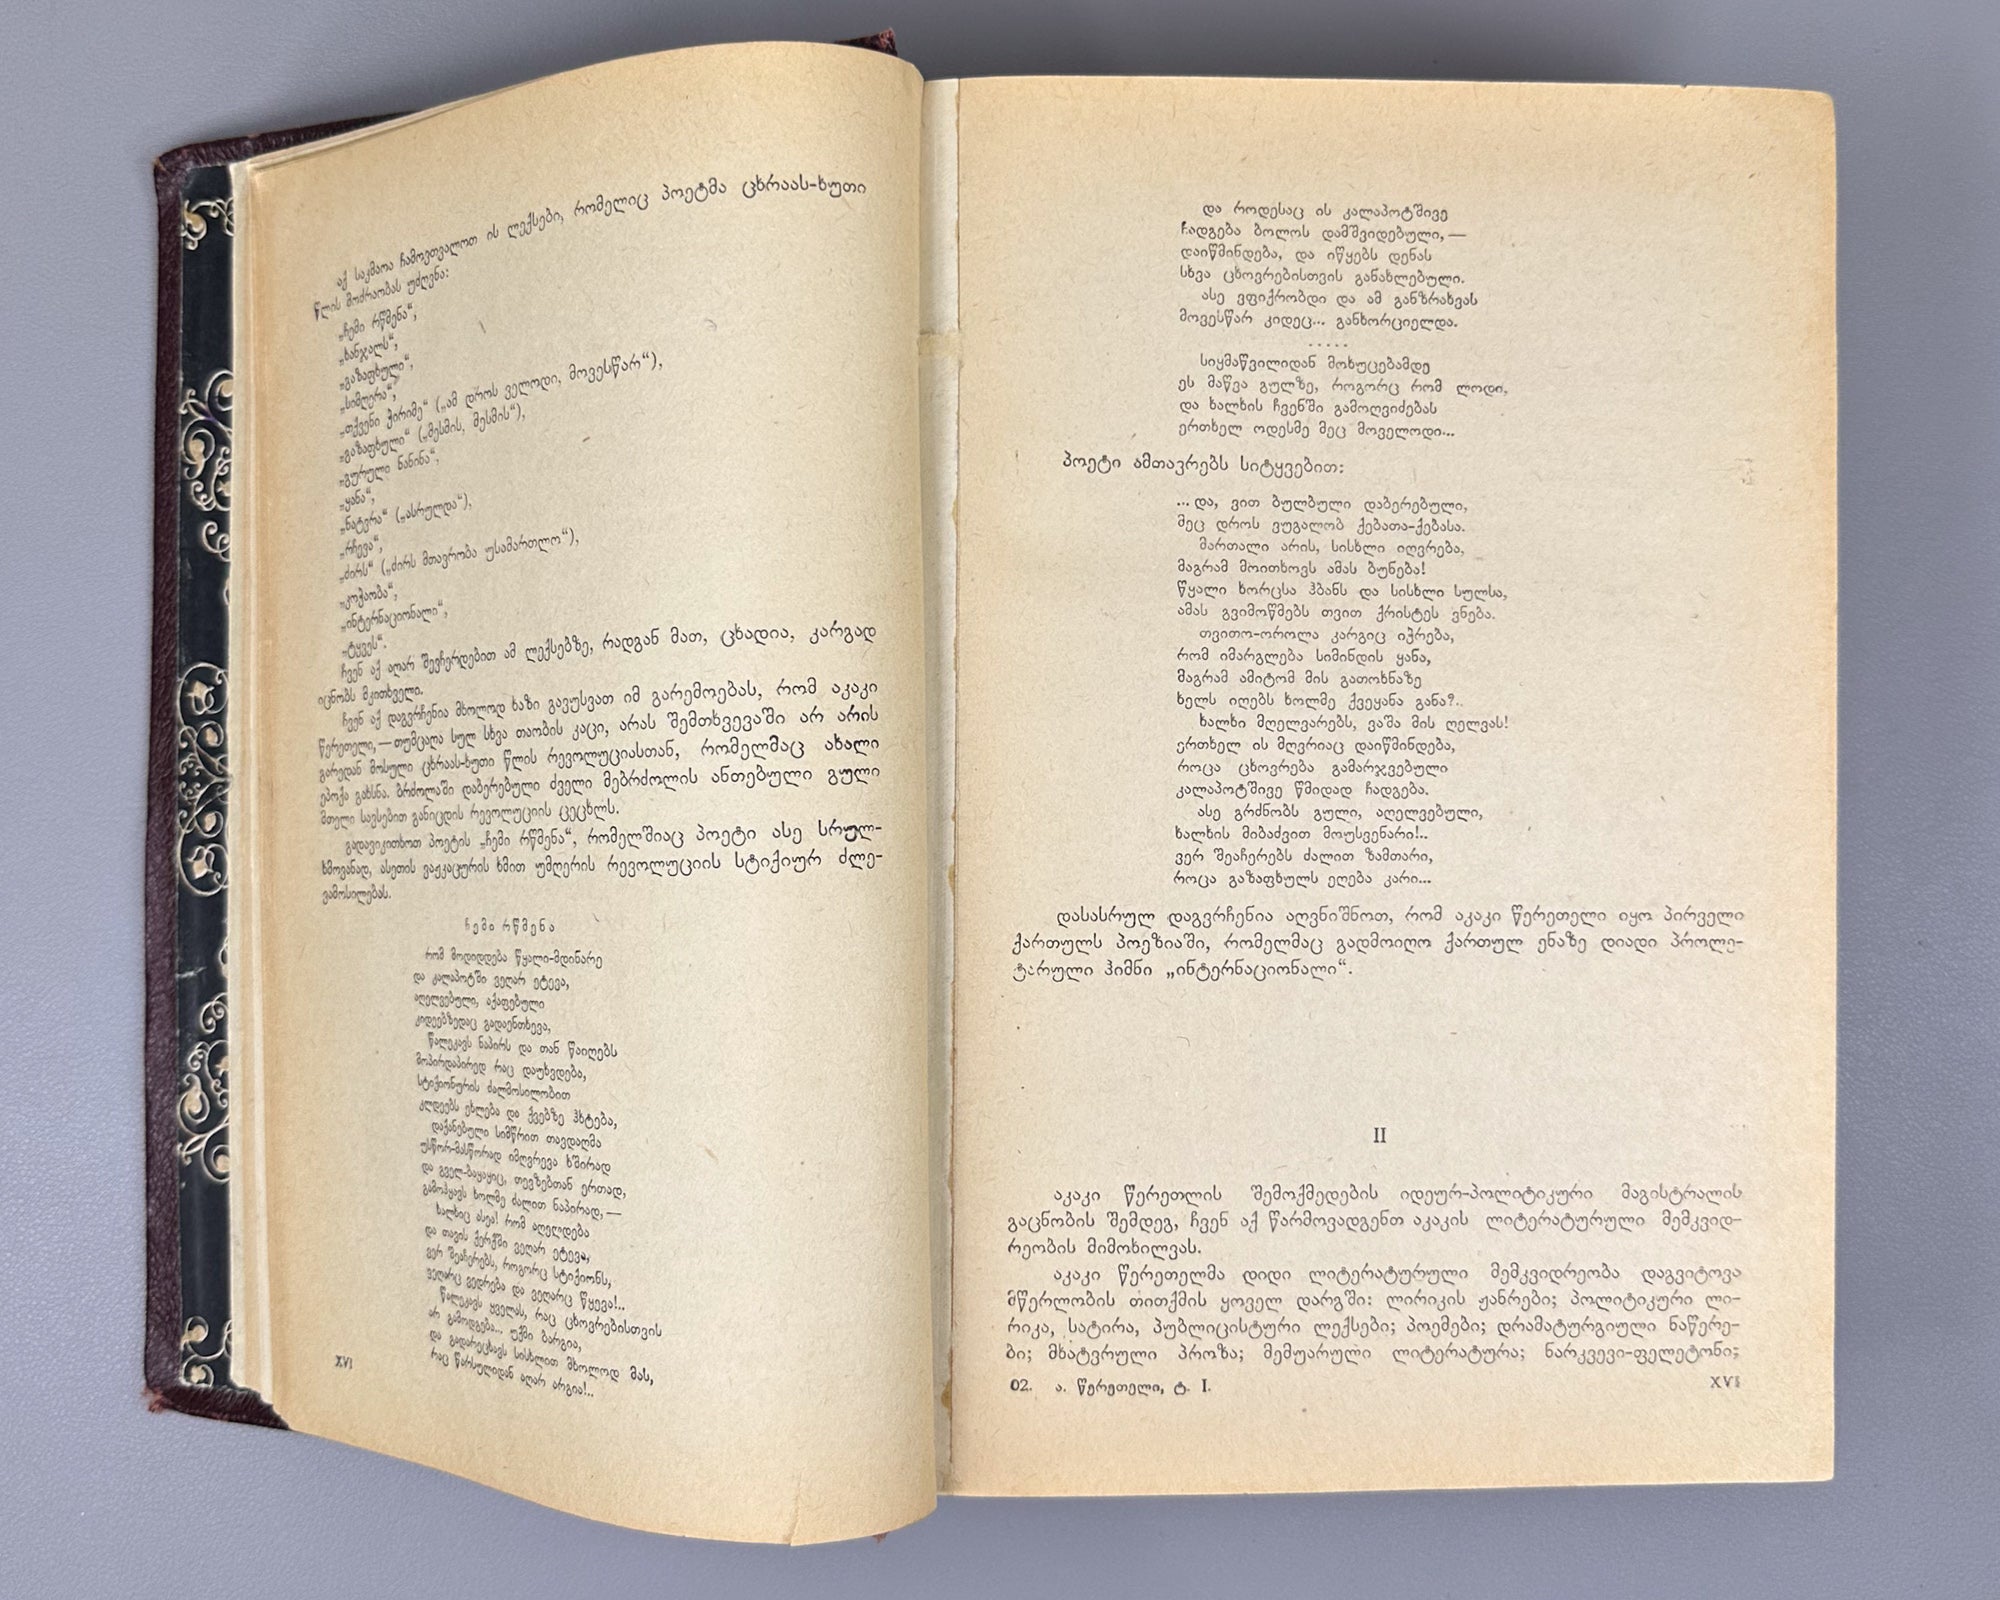 აქ საკმაოა ჩამოვთვალოთ ის ლექსები, რომელიც პოეტმა ცხრაას-ხუთი
წლის მოძრაობას უძღვნა:
„ჩემი რწმენა“,
„ხანჯალს“,
„გაზაფხული“,
„სიმღერა“,
„თქვენი ჭირიმე“ („ამ დროს ველოდი, მოვესწარ“),
„გაზაფხული“ („მესმის, მესმის“),
„გურული ნანინა“,
„ყანა“,
„ნატვრა“ („ასრულდა“),
„რჩევა“,
„ძირს“ („ძირს მთავრობა უსამართლო“),
„კოჭაობა“,
„ინტერნაციონალი“,
„ტყვეს“.
ჩვენ აქ აღარ შევჩერდებით ამ ლექსებზე, რადგან მათ, ცხადია, კარგად
იცნობს მკითხველი.
ჩვენ აქ დაგვრჩენია მხოლოდ ხაზი გავუსვათ იმ გარემოებას, რომ აკაკი
წერეთელი,—თუმცაღა სულ სხვა თაობის კაცი, არას შემთხვევაში არ არის
გარედან მოსული ცხრაას-ხუთი წლის რევოლუციასთან, რომელმაც ახალი
ეპოქა გახსნა. ბრძოლაში დაბერებული ძველი მებრძოლის ანთებული გული
მთელი სავსებით განიცდის რევოლუციის ცეცხლს.
გადავიკითხოთ პოეტის „ჩემი რწმენა“, რომელშიაც პოეტი ასე სრულ-
ხმოვანად, ასეთის ვაჟკაცურის ხმით უმღერის რევოლუციის სტიქიურ ძლე-
ვამოსილებას.
ჩემი რწმენა
რომ მოდიდდება წყალი-მდინარე
და კალაპოტში ვეღარ ეტევა,
აღელვებული, აქაფებული
კიდეებზედაც გადაენთხევა,
წალეკავს ნაპირს და თან წაიღებს
მოპირდაპირედ რაც დაუხვდება,
სტიქიონურის ძალმოსილობით
კლდეებს ეხლება და ქვებზე ჰხტება,
დაქანებული სიმწრით თავდაღმა
უსწორ-მასწორად იმღვრევა ხშირად
და გველ-ბაყაყიც, თევზებთან ერთად,
გამოჰყავს ხოლმე ძალით ნაპირად,—
ხალხიც ასეა! რომ აღელდება
და თავის ქერქში ვეღარ ეტევა,
ვერ შეაჩერებს, როგორც სტიქიონს,
ვეღარც ვედრება და ვეღარც წყევა!..
წალეკავს ყველას, რაც ცხოვრებისთვის
არ გამოდგება... უქმი ბარგია,
და გადარეცხავს სისხლით მხოლოდ მას,
რაც წარსულიდან აღარ არგია!..
XVI
და როდესაც ის კალაპოტშივე
ჩადგება ბოლოს დამშვიდებული,—
დაიწმინდება, და იწყებს დენას
სხვა ცხოვრებისთვის განახლებული.
ასე ვფიქრობდი და ამ განზრახვას
მოვესწარ კიდეც... განხორციელდა.
.....
სიყმაწვილიდან მოხუცებამდე
ეს მაწვა გულზე, როგორც რომ ლოდი,
და ხალხის ჩვენში გამოღვიძებას
ერთხელ ოდესმე მეც მოველოდი...
პოეტი ამთავრებს სიტყვებით:
... და, ვით ბულბული დაბერებული,
მეც დროს ვუგალობ ქებათა-ქებასა.
მართალი არის, სისხლი იღვრება,
მაგრამ მოითხოვს ამას ბუნება!
წყალი ხორცსა ჰბანს და სისხლი სულსა,
ამას გვიმოწმებს თვით ქრისტეს ვნება.
თვითო-ოროლა კარგიც იჭრება,
რომ იმარგლება სიმინდის ყანა,
მაგრამ ამიტომ მის გათოხნაზე
ხელს იღებს ხოლმე ქვეყანა განა?..
ხალხი მღელვარებს, ვაშა მის ღელვას!
ერთხელ ის მღვრიაც დაიწმინდება,
როცა ცხოვრება გამარჯვებული
კალაპოტშივე წმიდად ჩადგება.
ასე გრძნობს გული, აღელვებული,
ხალხის მიბაძვით მოუსვენარი!..
ვერ შეაჩერებს ძალით ზამთარი,
როცა გაზაფხულს ეღება კარი...
დასასრულ დაგვრჩენია აღვნიშნოთ, რომ აკაკი წერეთელი იყო პირველი
ქართულს პოეზიაში, რომელმაც გადმოიღო ქართულ ენაზე დიადი პროლე-
ტარული ჰიმნი „ინტერნაციონალი“.
II
აკაკი წერეთლის შემოქმედების იდეურ-პოლიტიკური მაგისტრალის
გაცნობის შემდეგ, ჩვენ აქ წარმოვადგენთ აკაკის ლიტერატურული მემკვიდ-
რეობის მიმოხილვას.
აკაკი წერეთელმა დიდი ლიტერატურული მემკვიდრეობა დაგვიტოვა
მწერლობის თითქმის ყოველ დარგში: ლირიკის ჟანრები; პოლიტიკური ლი-
რიკა, სატირა, პუბლიცისტური ლექსები; პოემები; დრამატურგიული ნაწერე-
ბი; მხატვრული პროზა; მემუარული ლიტერატურა; ნარკვევი-ფელეტონი;
02. ა. წერეთელი, ტ. I.
XVI